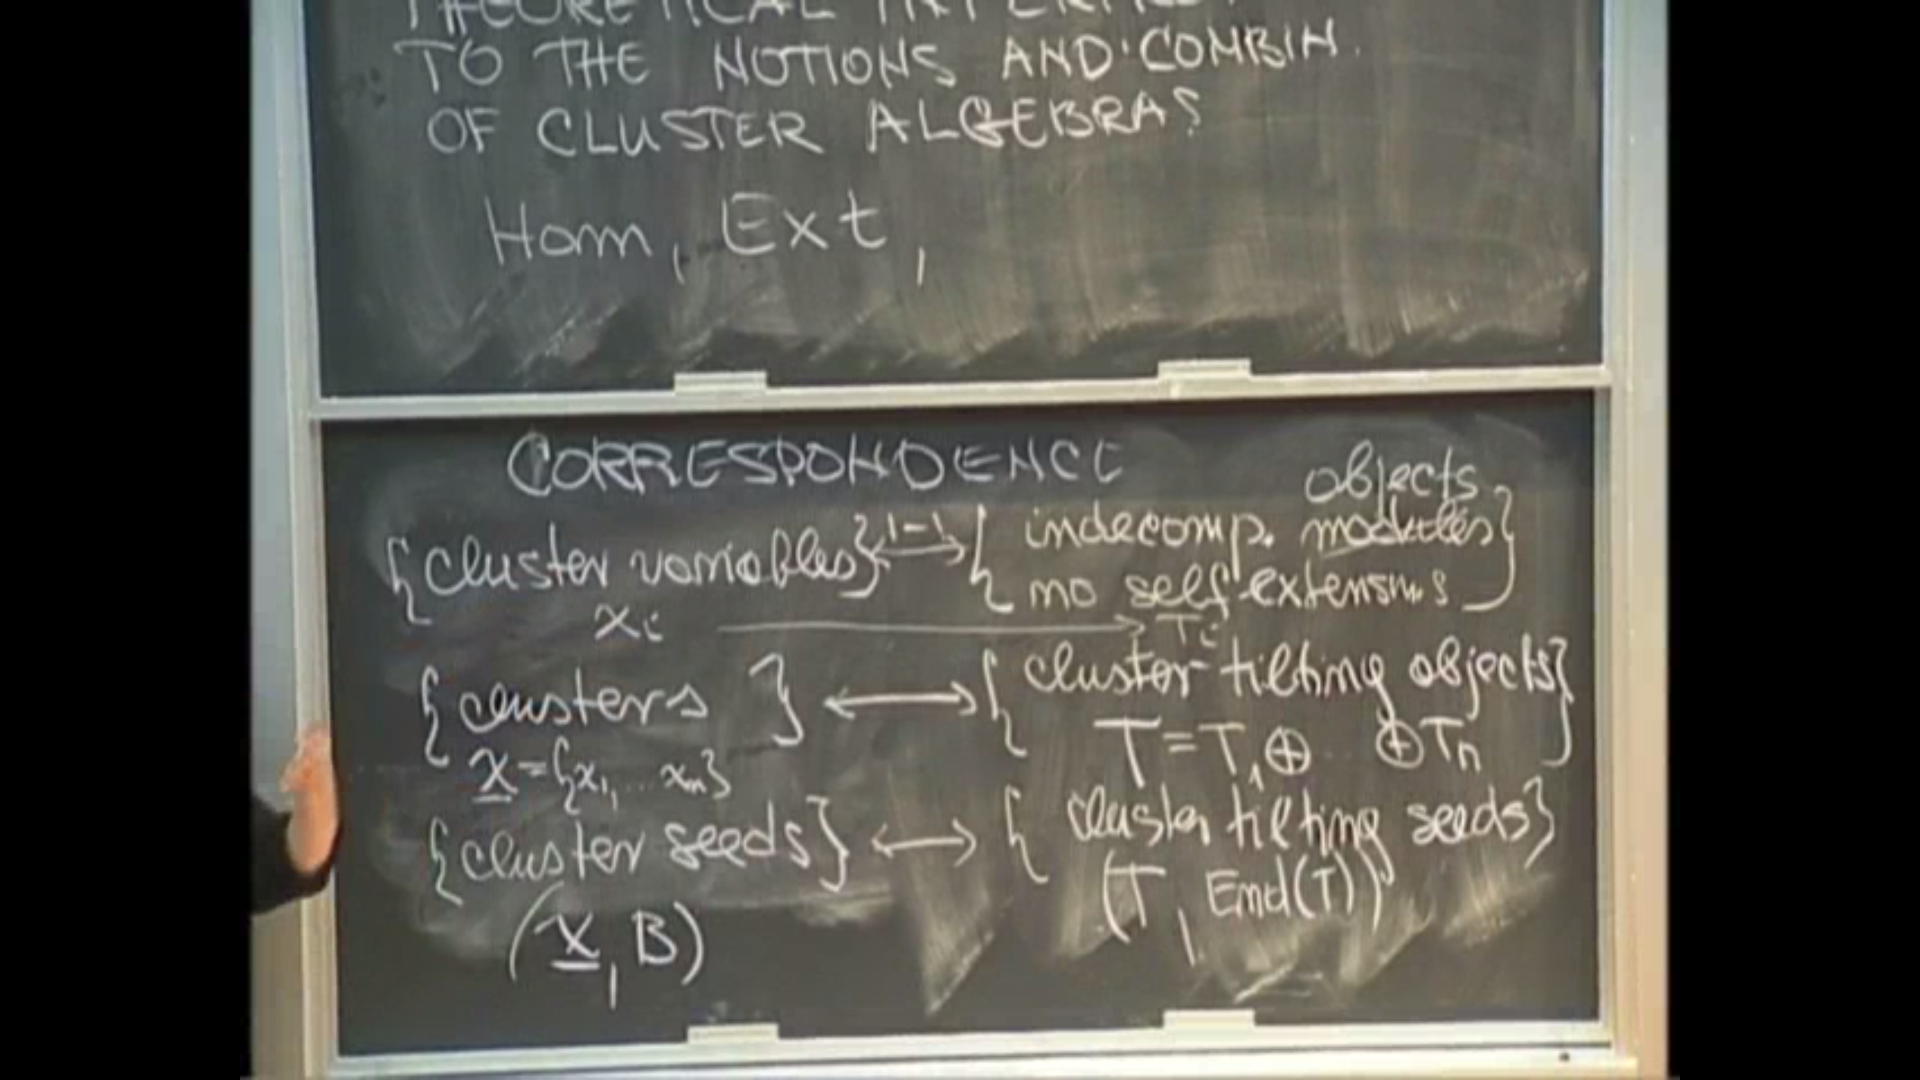 THEORETICAL
TO THE NOTIONS AND COMBIN.
OF CLUSTER ALGEBRAS
Hom, Ext,
CORRESPONDENCE
objects
{cluster variables} 1-1 ↔ { indecomp. modules}
no self extensions
x_i → T_i
{clusters} ↔ {cluster tilting objects}
x = {x_1, ... x_n} T = T_1 ⊕ .. ⊕ T_n
{cluster seeds} ↔ { cluster tilting seeds}
(x, B) (T, End(T))